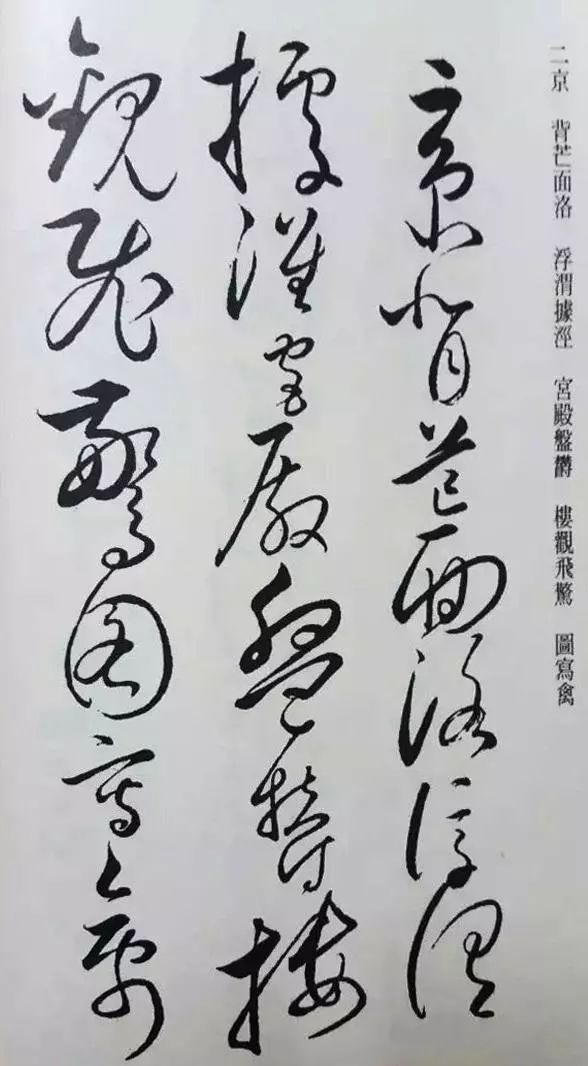 二京　背芒面洛　浮渭據涇　宮殿盤鬱　樓觀飛驚　圖寫禽
京背芒面洛浮渭
據涇宮殿盤鬱樓
觀飛驚圖寫禽